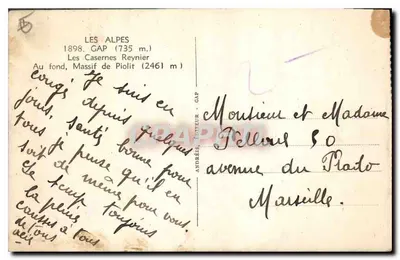 LES ALPES
1898. GAP (735 m.)
Les Casernes Reynier
Au fond, Massif de Piolit (2461 m)
Je suis en
congé depuis quelques
jours, santé bonne pour
tous je pense qu'il en
soit de même pour vous.
Le temps toujours
à la pluie
caresses à tous
de tous
ANDRÉE, EDITEUR - GAP
Monsieur et Madame
Pellous 50
avenue du Prado
Marseille.